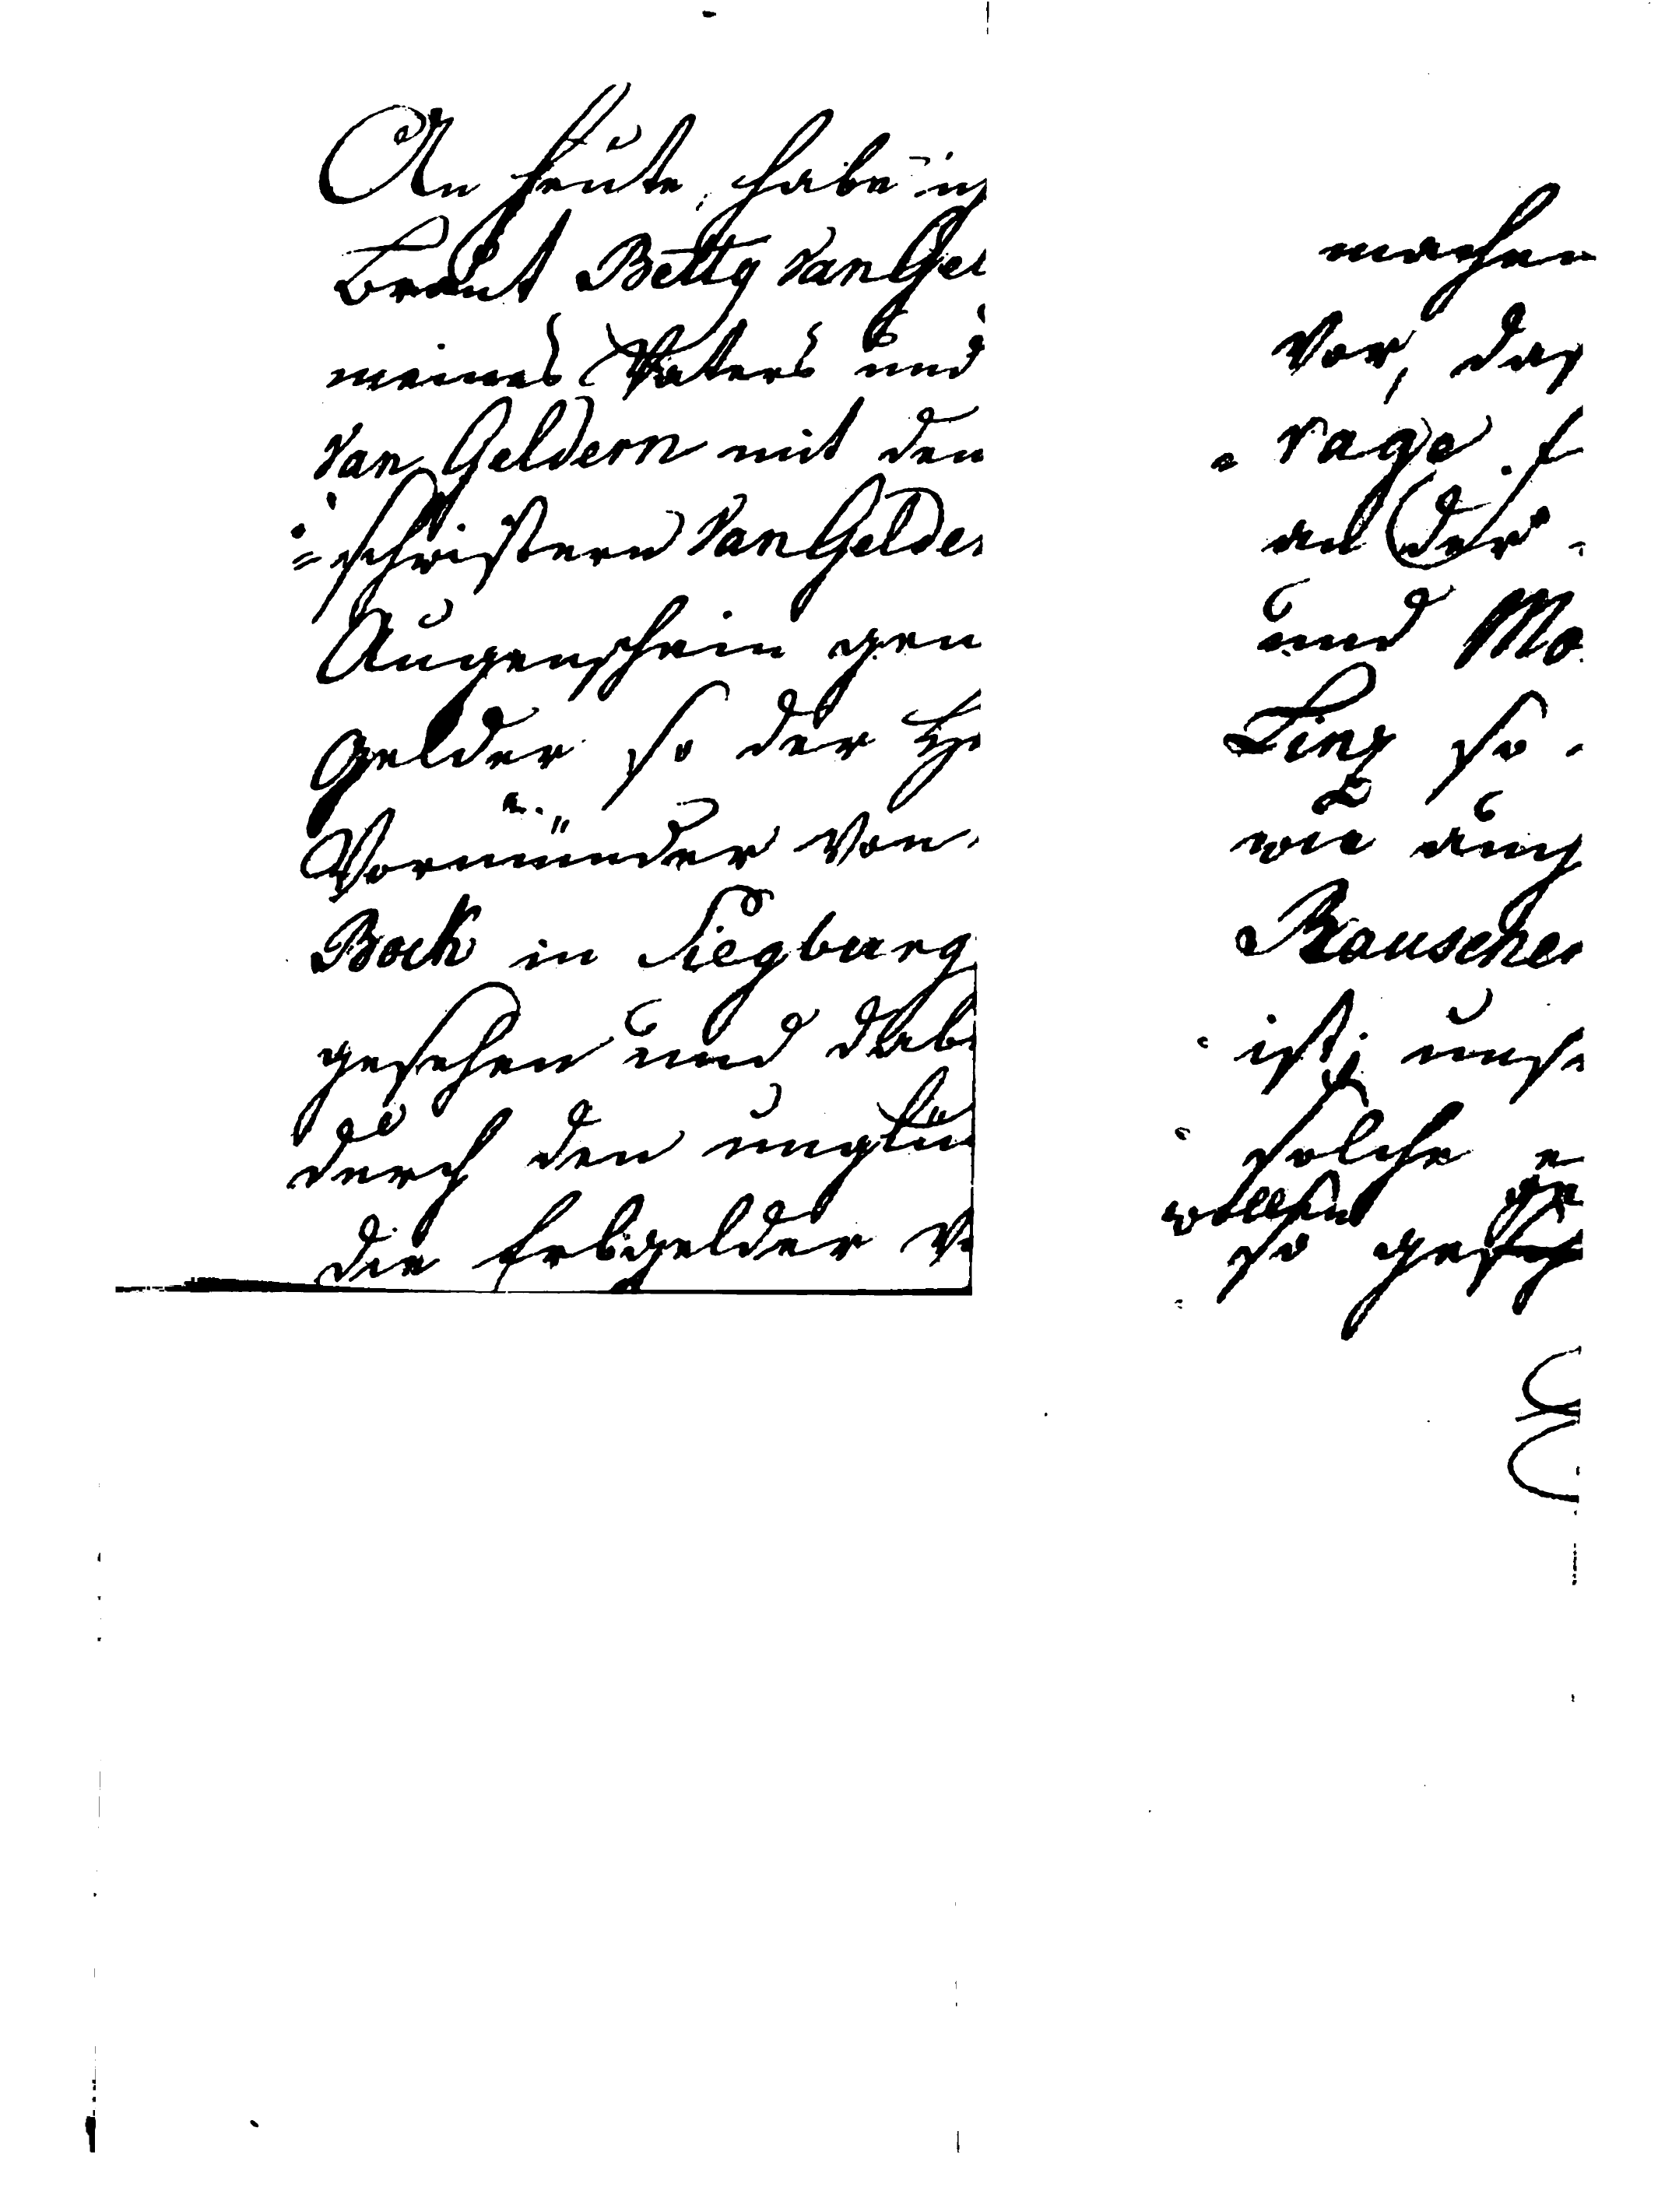 An heute habe ich
Braut Betty van Gel
meines Vaters und
van Geldern mit den
=schwistern van Gelder
Augenschein gen
Gelder so der H
Vormünder von
Bock in Siegburg
gesehen und dab
durch den unglü
die Erbgelder v
machen
vor, das
rage
an der
und Mo
Linz so
wie auch
Rauscher
ist;
solche
wollen ge
so